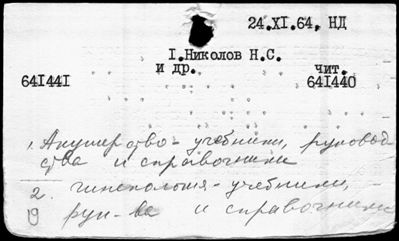 24.XI.64, НД
I.Николов Н.С.
и др. чит.
641441 641440
1. Акушерство - учебники, руковод-
ства и справочники
2. гинекология - учебники,
рук-ва и справочники